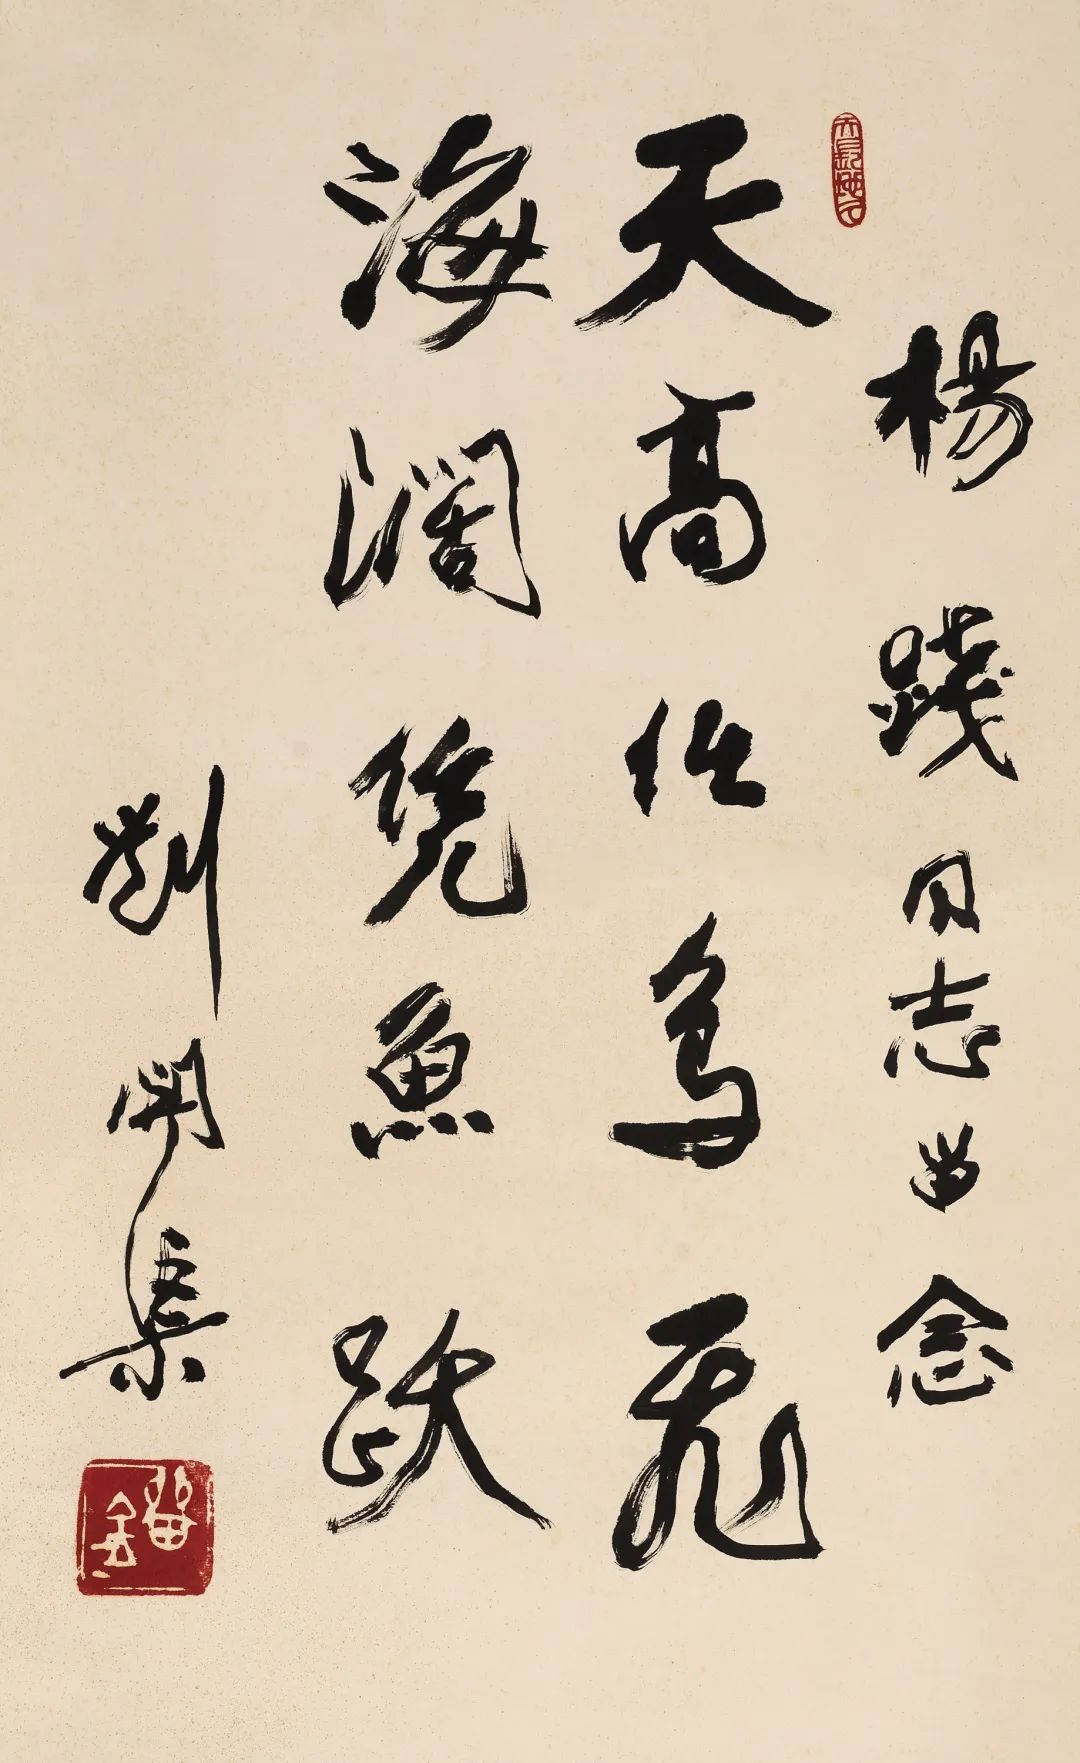 楊踐同志留念
天高任鳥飛
海濶凭魚躍
劉開渠